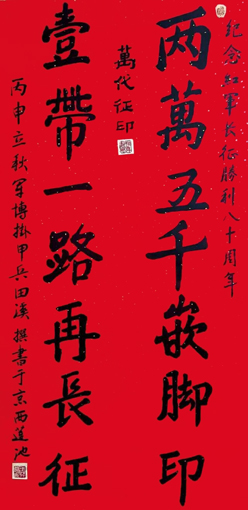 纪念红军长征勝利八十周年
两萬五千嵌脚印
萬代征印
壹帶一路再長征
丙申立秋军博掛甲兵田溪撰書于京西莲池